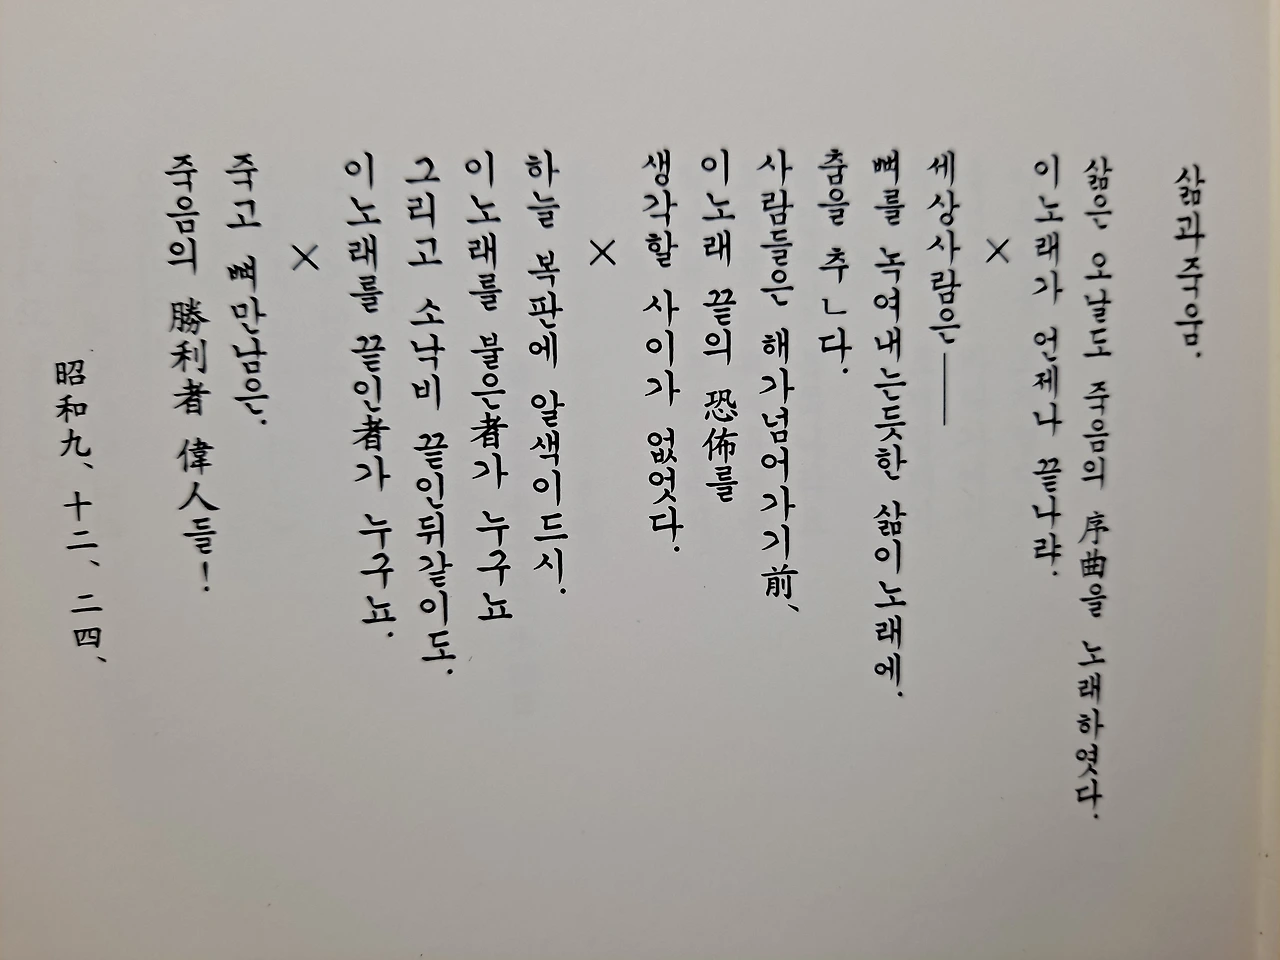 삶과죽음.
삶은 오날도 죽음의 序曲을 노래하엿다.
이노래가 언제나 끝나랴.
×
세상사람은——
뼈를 녹여내는듯한 삶이노래에.
춤을 추ㄴ다.
사람들은 해가넘어가기前、
이노래 끝의 恐怖를
생각할 사이가 없엇다.
×
하늘 복판에 알색이드시.
이노래를 불은者가 누구뇨
그리고 소낙비 끝인뒤같이도.
이노래를 끝인者가 누구뇨.
×
죽고 뼈만남은.
죽음의 勝利者 偉人들!
昭和九、十二、二四、